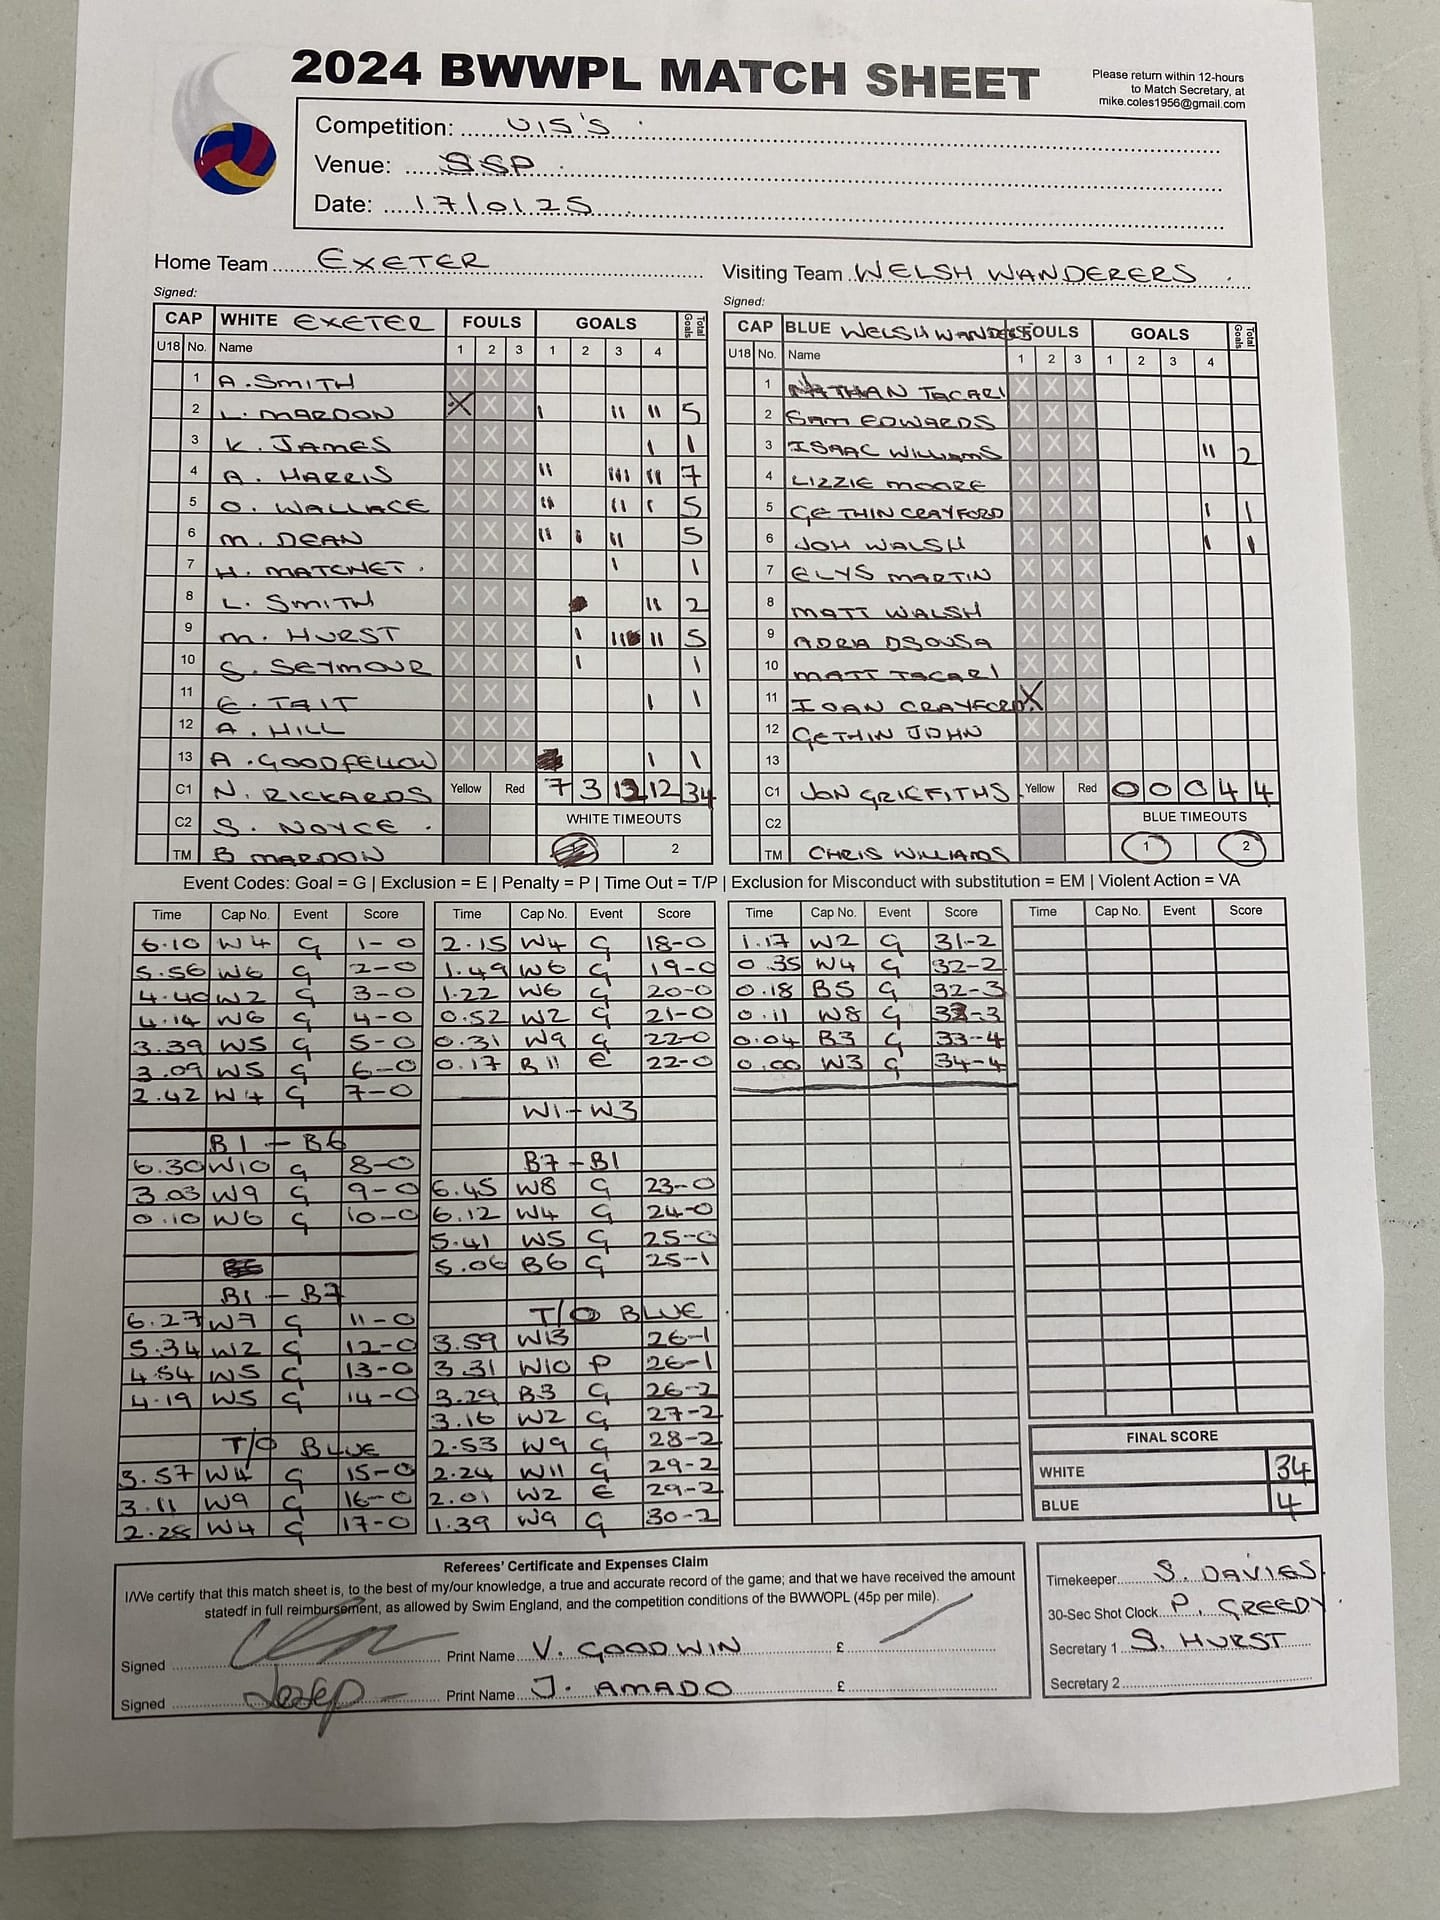 2024 BWWPL MATCH SHEET
Please return within 12-hours
to Match Secretary, at
mike.coles1956@gmail.com
Competition: U15'S
Venue: SSP
Date: 17/01/25
Home Team EXETER
Visiting Team WELSH WANDERERS
Signed:
Signed:
CAP WHITE EXETER FOULS GOALS Total Goals
U18 No. Name 1 2 3 1 2 3 4
1 A. SMITH X X X
2 L. MARDON X X X I II II 5
3 K. JAMES X X X I 1
4 A. HARRIS X X X II III II 7
5 O. WALLACE X X X II II I 5
6 M. DEAN X X X II I II 5
7 H. MATCHET. X X X I 1
8 L. SMITH X X X II 2
9 M. HURST X X X I II II 5
10 S. SEYMOUR X X X I 1
11 E. TAIT X X X I 1
12 A. HILL X X X
13 A. GOODFELLOW X X X I 1
C1 N. RICKARDS Yellow Red 7 3 12 12 34
C2 S. NOYCE. WHITE TIMEOUTS
TM B MARDON 2
CAP BLUE WELSH WANDERERS FOULS GOALS Total Goals
U18 No. Name 1 2 3 1 2 3 4
1 NATHAN TACARI X X X
2 SAM EDWARDS X X X
3 ISAAC WILLIAMS X X X II 2
4 LIZZIE MOORE X X X
5 GETHIN CRAYFORD X X X I 1
6 JOH WALSH X X X I 1
7 ELYS MARTIN X X X
8 MATT WALSH X X X
9 ADRIA DSOUSA X X X
10 MATT TACARI X X X
11 IOAN CRAYFORD X X X
12 GETHIN JOHN X X X
13 X X X
C1 JON GRIFFITHS Yellow Red 0 0 0 4 4
C2 BLUE TIMEOUTS
TM CHRIS WILLIAMS 1 2
Event Codes: Goal = G | Exclusion = E | Penalty = P | Time Out = T/P | Exclusion for Misconduct with substitution = EM | Violent Action = VA
Time Cap No. Event Score
6.10 W4 G 1-0
5.56 W6 G 2-0
4.40 W2 G 3-0
4.14 W6 G 4-0
3.39 W5 G 5-0
3.09 W5 G 6-0
2.42 W4 G 7-0
B1 - B6
6.30 W10 G 8-0
3.03 W9 G 9-0
0.10 W6 G 10-0
B1 - B7
6.27 W7 G 11-0
5.34 W2 G 12-0
4.54 W5 G 13-0
4.19 W5 G 14-0
T/O BLUE
3.57 W4 G 15-0
3.11 W9 G 16-0
2.28 W4 G 17-0
Time Cap No. Event Score
2.15 W4 G 18-0
1.49 W6 G 19-0
1.22 W6 G 20-0
0.52 W2 G 21-0
0.31 W9 G 22-0
0.17 B11 E 22-0
W1 - W3
B7 - B1
6.45 W8 G 23-0
6.12 W4 G 24-0
5.41 W5 G 25-0
5.06 B6 G 25-1
T/O BLUE
3.59 W13 26-1
3.31 W10 P 26-1
3.29 B3 G 26-2
3.16 W2 G 27-2
2.53 W9 G 28-2
2.24 W11 G 29-2
2.01 W2 E 29-2
1.39 W9 G 30-2
Time Cap No. Event Score
1.17 W2 G 31-2
0.35 W4 G 32-2
0.18 B5 G 32-3
0.11 W8 G 33-3
0.04 B3 G 33-4
0.00 W3 G 34-4
Time Cap No. Event Score
FINAL SCORE
WHITE 34
BLUE 4
Referees' Certificate and Expenses Claim
I/We certify that this match sheet is, to the best of my/our knowledge, a true and accurate record of the game; and that we have received the amount
statedf in full reimbursement, as allowed by Swim England, and the competition conditions of the BWWOPL (45p per mile).
Signed Print Name V. GOODWIN £
Signed Print Name J. AMADO £
Timekeeper S. DAVIES
30-Sec Shot Clock P. GREEDY
Secretary 1 S. HURST
Secretary 2